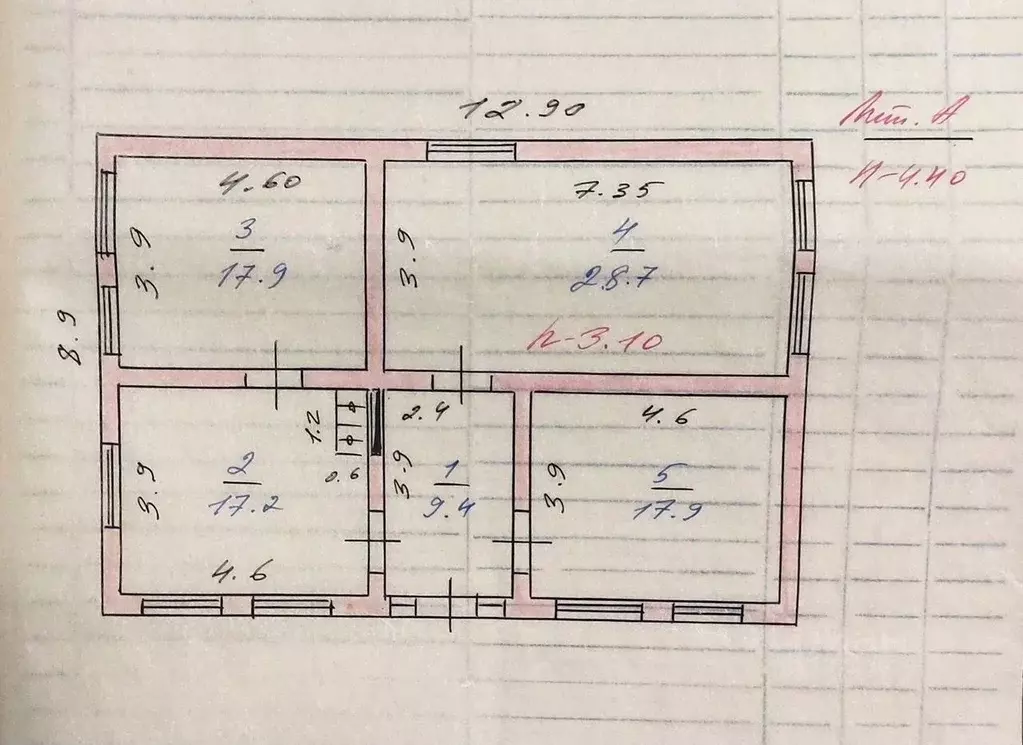 12.90
Лит. А
Н-4.40
4.60
3
17.9
3.9
7.35
4
28.7
3.9
h-3.10
8.9
1.2
0.6
2
17.2
3.9
4.6
2.4
1
9.4
3.9
4.6
5
17.9
3.9